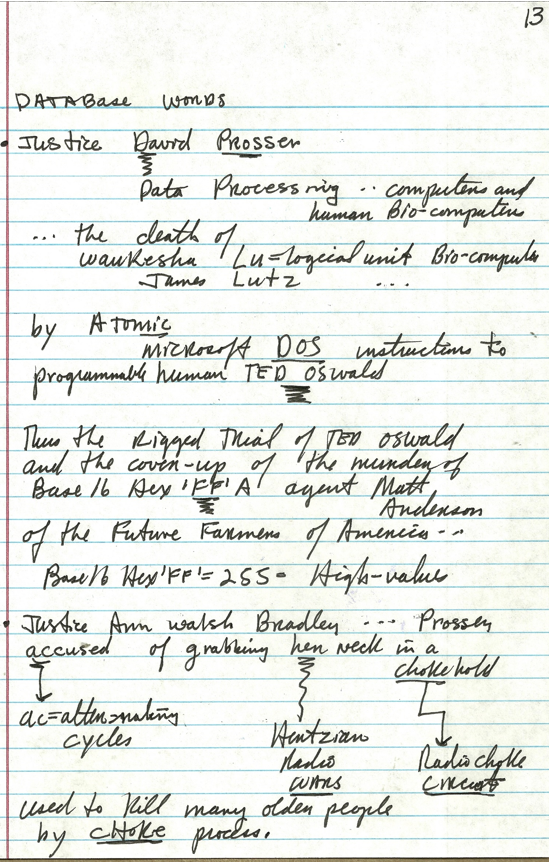 13
DATABase words
• Justice David Prosser
Data Processing .. computers and
human Bio-computers
... the death of
Waukesha Lu=logical unit Bio-computer
James Lutz ...
by Atomic
Microsoft DOS instructions to
programmable human TED Oswald
Thus the Rigged Trial of TED Oswald
and the cover-up of the murder of
Base 16 Hex 'FF' A agent Matt
Anderson
of the Future Farmers of America...
Base 16 Hex 'FF' = 255 = High-values
• Justice Ann Walsh Bradley ... Prosser
accused of grabbing her neck in a
chokehold
ac=alternating
cycles
Hertzian
Radio
WARS
Radio choke
Circuit
used to kill many older people
by CHOKE process.